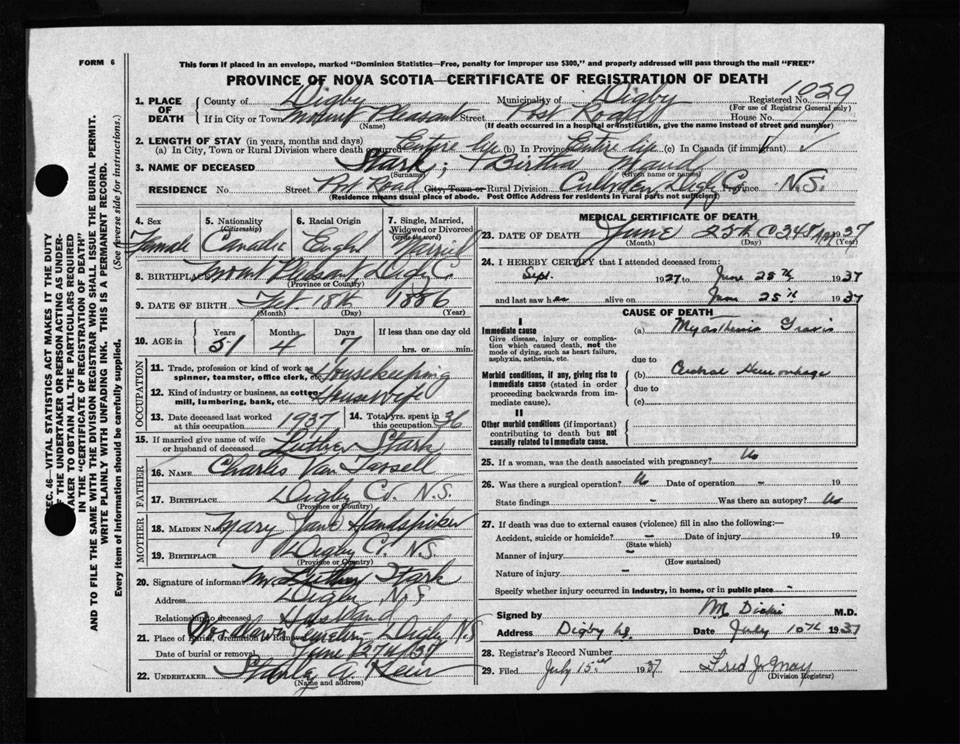 FORM 6
This form if placed in an envelope, marked "Dominion Statistics—Free, penalty for improper use $300," and properly addressed will pass through the mail "FREE"
PROVINCE OF NOVA SCOTIA—CERTIFICATE OF REGISTRATION OF DEATH
1. PLACE OF DEATH County of Digby Municipality of Digby Registered No. 1029
(For use of Registrar General only)
If in City or Town Mount Pleasant Street Post Road House No.
(Name) (If death occurred in a hospital or institution, give the name instead of street and number)
2. LENGTH OF STAY (in years, months and days)
(a) In City, Town or Rural Division where death occurred Entire life (b) In Province Entire life (c) In Canada (if immigrant) ✓
3. NAME OF DECEASED Stark; Birtha Maud
(Surname) (Given name or names)
RESIDENCE No. Street Post Road City, Town or Rural Division Digby Co Province N.S.
(Residence means usual place of abode. Post Office Address for residents in rural parts not sufficient)
4. Sex 5. Nationality (Citizenship) 6. Racial Origin 7. Single, Married, Widowed or Divorced (write the word)
Female
8. BIRTHPLACE Mount Pleasant Digby Co
(Province or Country)
9. DATE OF BIRTH Feb 18th 1886
(Month) (Day) (Year)
10. AGE in Years Months Days If less than one day old
51 4 7 hrs. or min.
OCCUPATION
11. Trade, profession or kind of work as spinner, teamster, office clerk, etc. Housekeeping
12. Kind of industry or business, as cotton-mill, lumbering, bank, etc. Housewife
13. Date deceased last worked at this occupation 1937 14. Total yrs. spent in this occupation 36
15. If married give name of wife or husband of deceased Luther Stark
FATHER
16. NAME Charles Van Tassell
17. BIRTHPLACE Digby Co. N.S.
(Province or Country)
MOTHER
18. MAIDEN NAME Mary Jane Handspiker
19. BIRTHPLACE Digby Co. N.S.
(Province or Country)
20. Signature of informant Mr Luther Stark
Address Digby N.S
Relationship to deceased Husband
21. Place of Burial, Cremation or Removal Cemetery Digby N.S
Date of burial or removal June 27th/37
22. UNDERTAKER
(Name and address)
MEDICAL CERTIFICATE OF DEATH
23. DATE OF DEATH June 25th 1937
(Month) (Day) (Year)
24. I HEREBY CERTIFY that I attended deceased from:
Sept. 1927 to June 25th 1937
and last saw her alive on June 25th 1937
CAUSE OF DEATH
I
Immediate cause (a) Myasthenia Gravis
Give disease, injury or complication which caused death, not the mode of dying, such as heart failure, asphyxia, asthenia, etc.
due to
Morbid conditions, if any, giving rise to immediate cause (stated in order proceeding backwards from immediate cause).
(b) Cerebral Hemorrhage
due to
(c)
II
Other morbid conditions (if important) contributing to death but not causally related to immediate cause.
25. If a woman, was the death associated with pregnancy? No
26. Was there a surgical operation? No Date of operation - 19
State findings - Was there an autopsy? No
27. If death was due to external causes (violence) fill in also the following:—
Accident, suicide or homicide? - Date of injury 19
(State which)
Manner of injury -
(How sustained)
Nature of injury -
Specify whether injury occurred in industry, in home, or in public place -
Signed by M. Dickie M.D.
Address Digby N.S. Date July 10th 1937
28. Registrar's Record Number
29. Filed July 15th 1937 Fred J. May
(Division Registrar)
SEC. 46—VITAL STATISTICS ACT MAKES IT THE DUTY OF THE UNDERTAKER OR PERSON ACTING AS UNDERTAKER TO OBTAIN ALL THE PARTICULARS REQUIRED IN THE "CERTIFICATE OF REGISTRATION OF DEATH"
AND TO FILE THE SAME WITH THE DIVISION REGISTRAR WHO SHALL ISSUE THE BURIAL PERMIT.
WRITE PLAINLY WITH UNFADING INK. THIS IS A PERMANENT RECORD.
Every item of information should be carefully supplied. (See reverse side for instructions.)